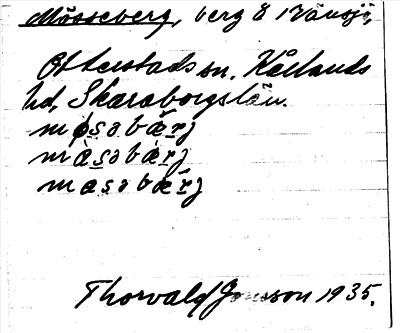 Mösseberg, berg å Vänsjö,
Otterstads sn, Kållands
hd, Skaraborgslän.
møsabærj
màsabærj
masabærj
Thorvald Jonsson 1935.